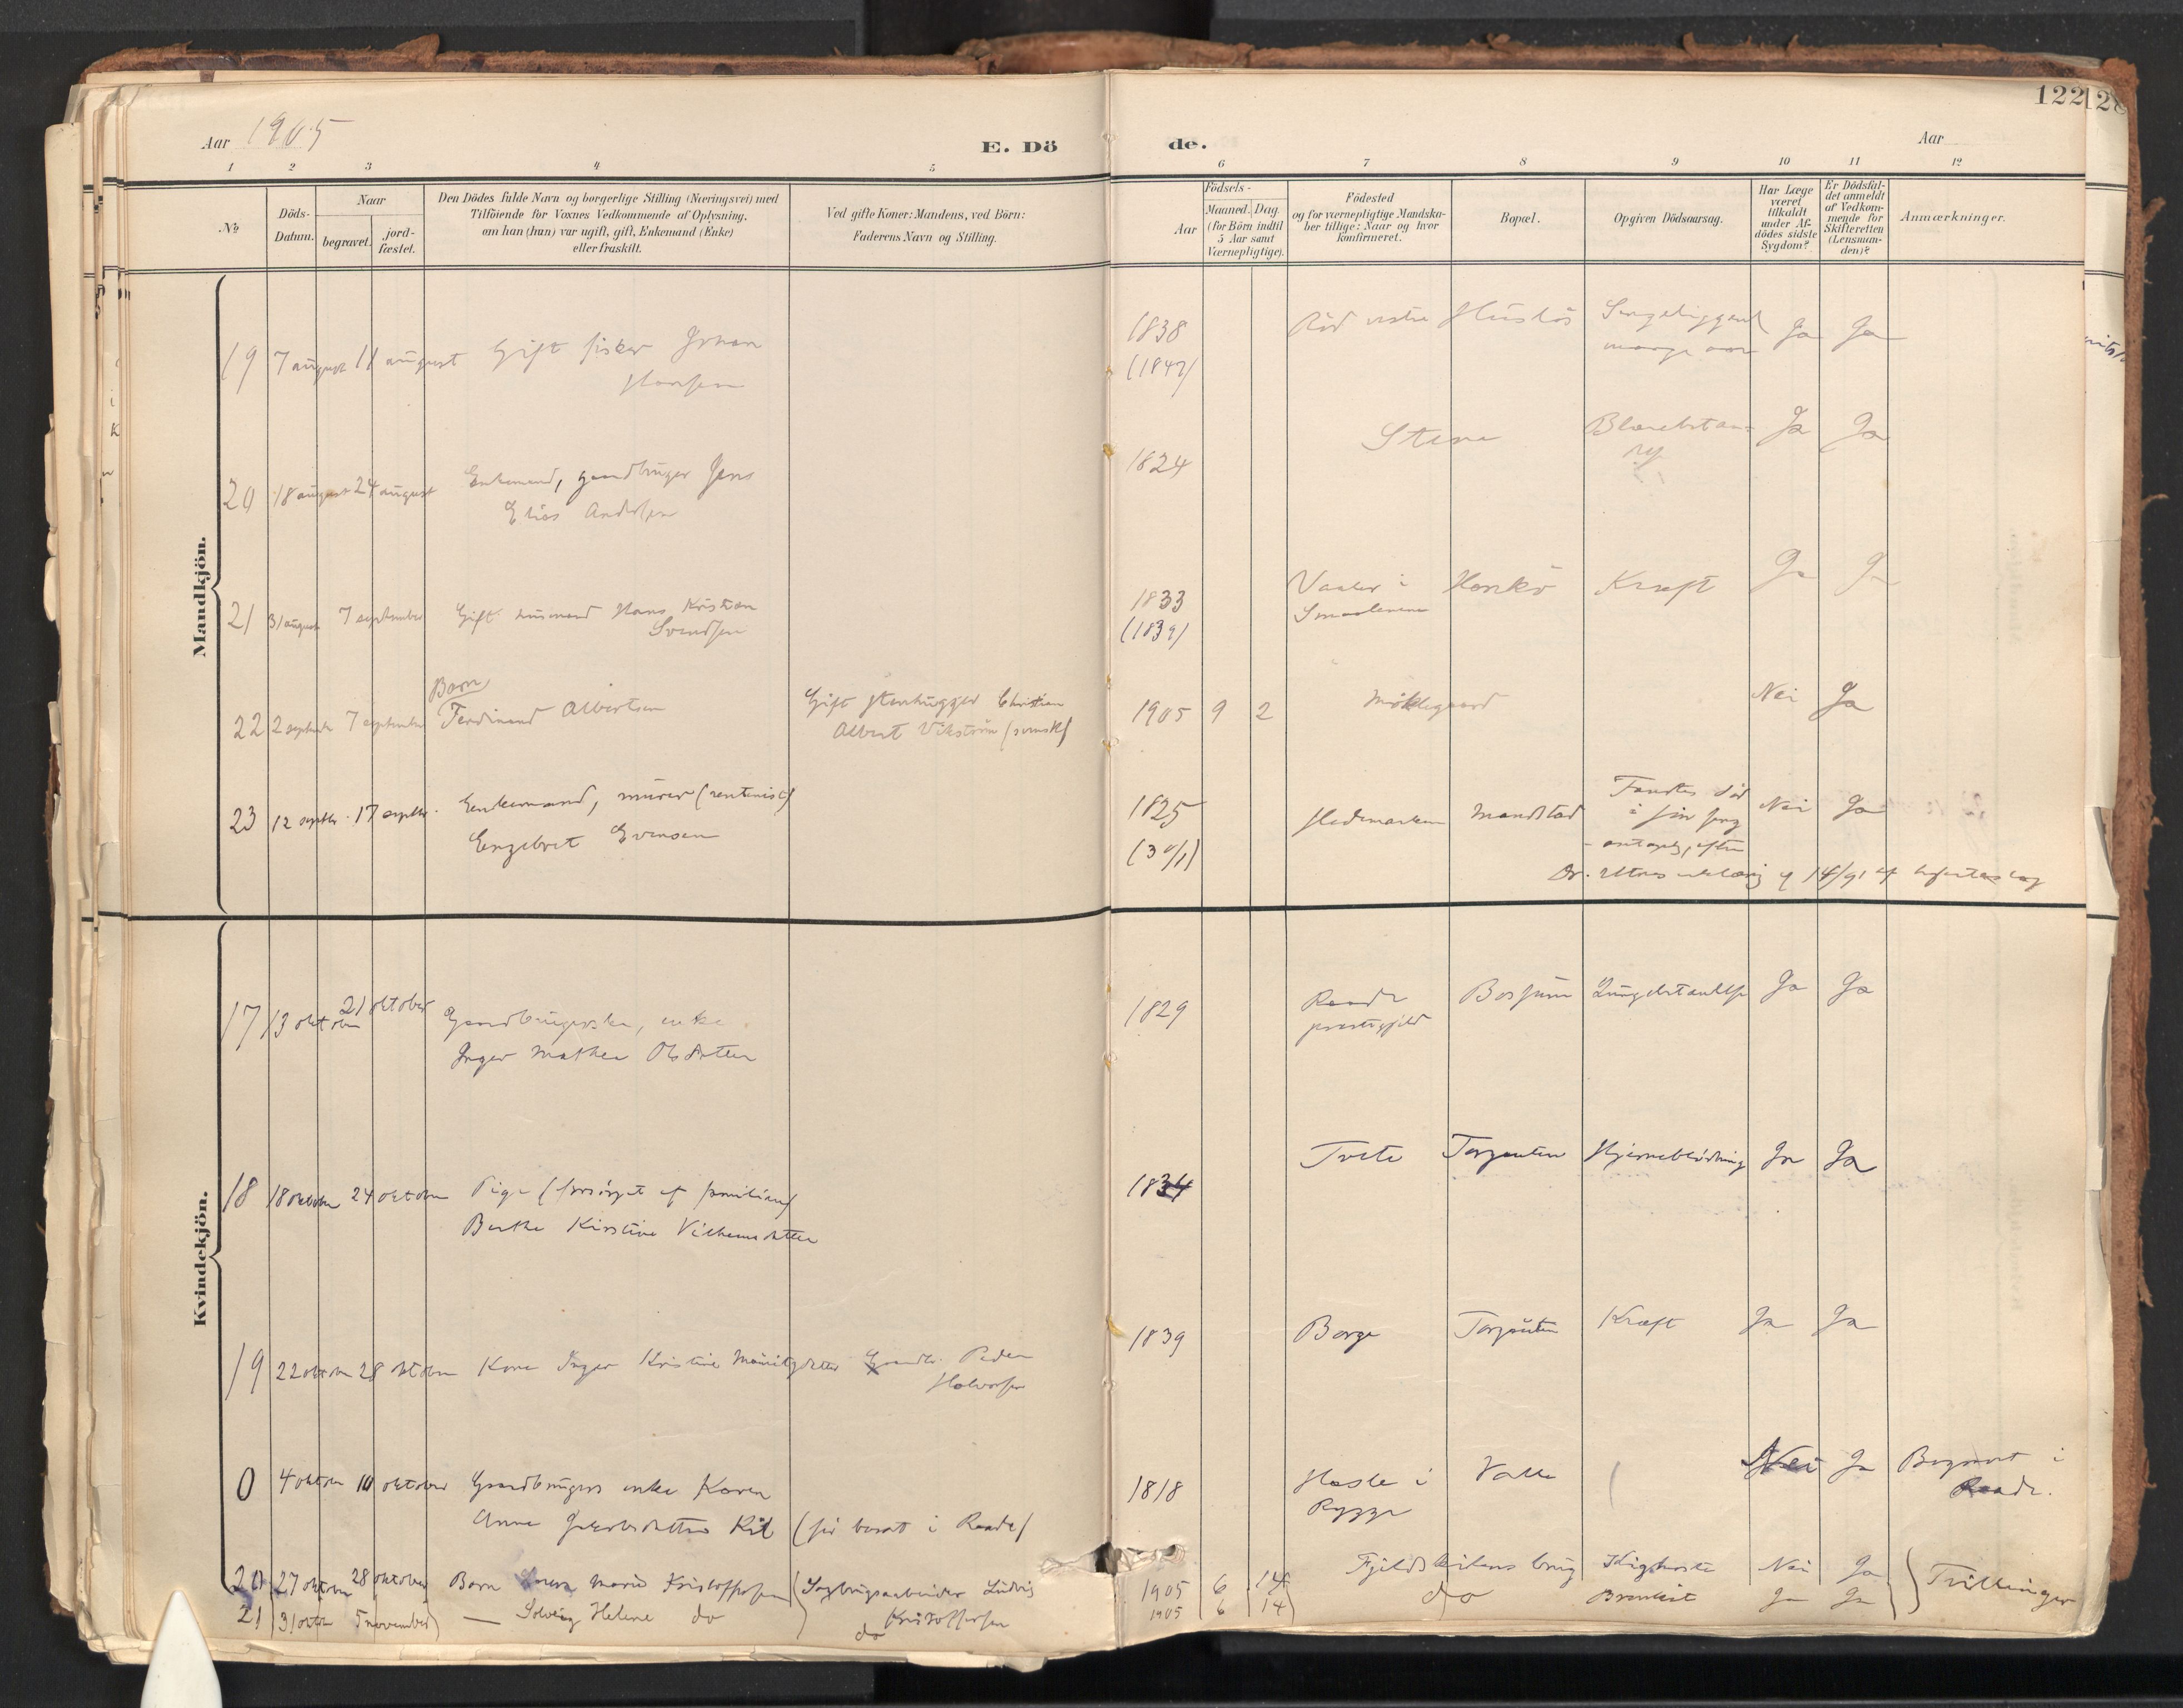 122
Aar 1905
E. Döde.
Aar
1 2 3 4 5 6 7 8 9 10 11 12
No
Döds-Datum.
Naar
begravet.
jord-fæstet.
Den Dödes fulde Navn og borgerlige Stilling (Næringsvei) med
Tilföiende for Voxnes Vedkommende af Oplysning,
om han (hun) var ugift, gift, Enkemand (Enke)
eller fraskilt.
Ved gifte Koner: Mandens, ved Börn:
Faderens Navn og Stilling.
Födsels-
Aar
Maaned. Dag.
(for Börn indtil
5 Aar samt
Værnepligtige).
Födested
og for værnepligtige Mandska-
ber tillige: Naar og hvor
konfirmeret.
Bopæl.
Opgiven Dödsaarsag.
Har Læge
været
tilkaldt
under Af-
dödes sidste
Sygdom?
Er Dödsfal-
det anmeldt
af Vedkom-
mende for
Skifteretten
(Lensman-
den)?
Anmærkninger.
Mandkjön.
19 7 august 11 august Gift fisker Johan
Hansen
1838
(1842)
Röd vestre Huslös Sengeliggende
mange aar
Ja Ja
20 18 august 24 august Enkemand, gaardbruger Jens
Elias Andersen
1824
Stene
Ja Ja
21 31 august 7 september Gift husmand Hans Kristian
Svendsen
1833
(1839)
Vaaler i
Smaalenene
Hankö Kræft Ja Ja
22 2 september 7 september Barn
Ferdinand Albertsen
Gift stenhugger Christian
Albert Vikström (svensk)
1905 9 2 Möklegaard Nei Ja
23 12 septbr. 17 septbr. Enkemand, murer (rentenist)
Engebret Evensen
1825
(30/1)
Hedemarken Mandstad Fandtes död
i sin seng
Nei Ja
Kvindekjön.
17 13 oktober 21 oktober Gaardbrugerske, enke
Inger Mathea Olsdatter
1829
Raade
præstegjeld
Ja Ja
18 18 oktober 24 oktober Pige (forsörget af familien)
Berthe Kirstine Vilhemsdatter
1834
Tvete Torgauten Hjerneblödning Ja Ja
19 22 oktober 28 oktober Kone Inger Kristine Mauritzdatter Gaardbr. Peder
Halvorsen
1839 Borge Torgauten Kræft Ja Ja
0 4 oktober 10 oktober Gaardbrugers enke Karen
Anne Jakobsdatter Kil (för bosat i Raade)
1818
Hasle i
Rygge
Valle Nei Ja Begravet i
Raade.
20 27 oktober 28 oktober Barn Marie Kristoffersen Sagbrugsarbeider Ludvig
Kristoffersen
1905 6 14 Fjeldskilens brug Kighoste Nei Ja
Tvillinger
21 31 oktober 5 november — Solveig Helene do do
1905 6 14 do Bronkit Ja Ja